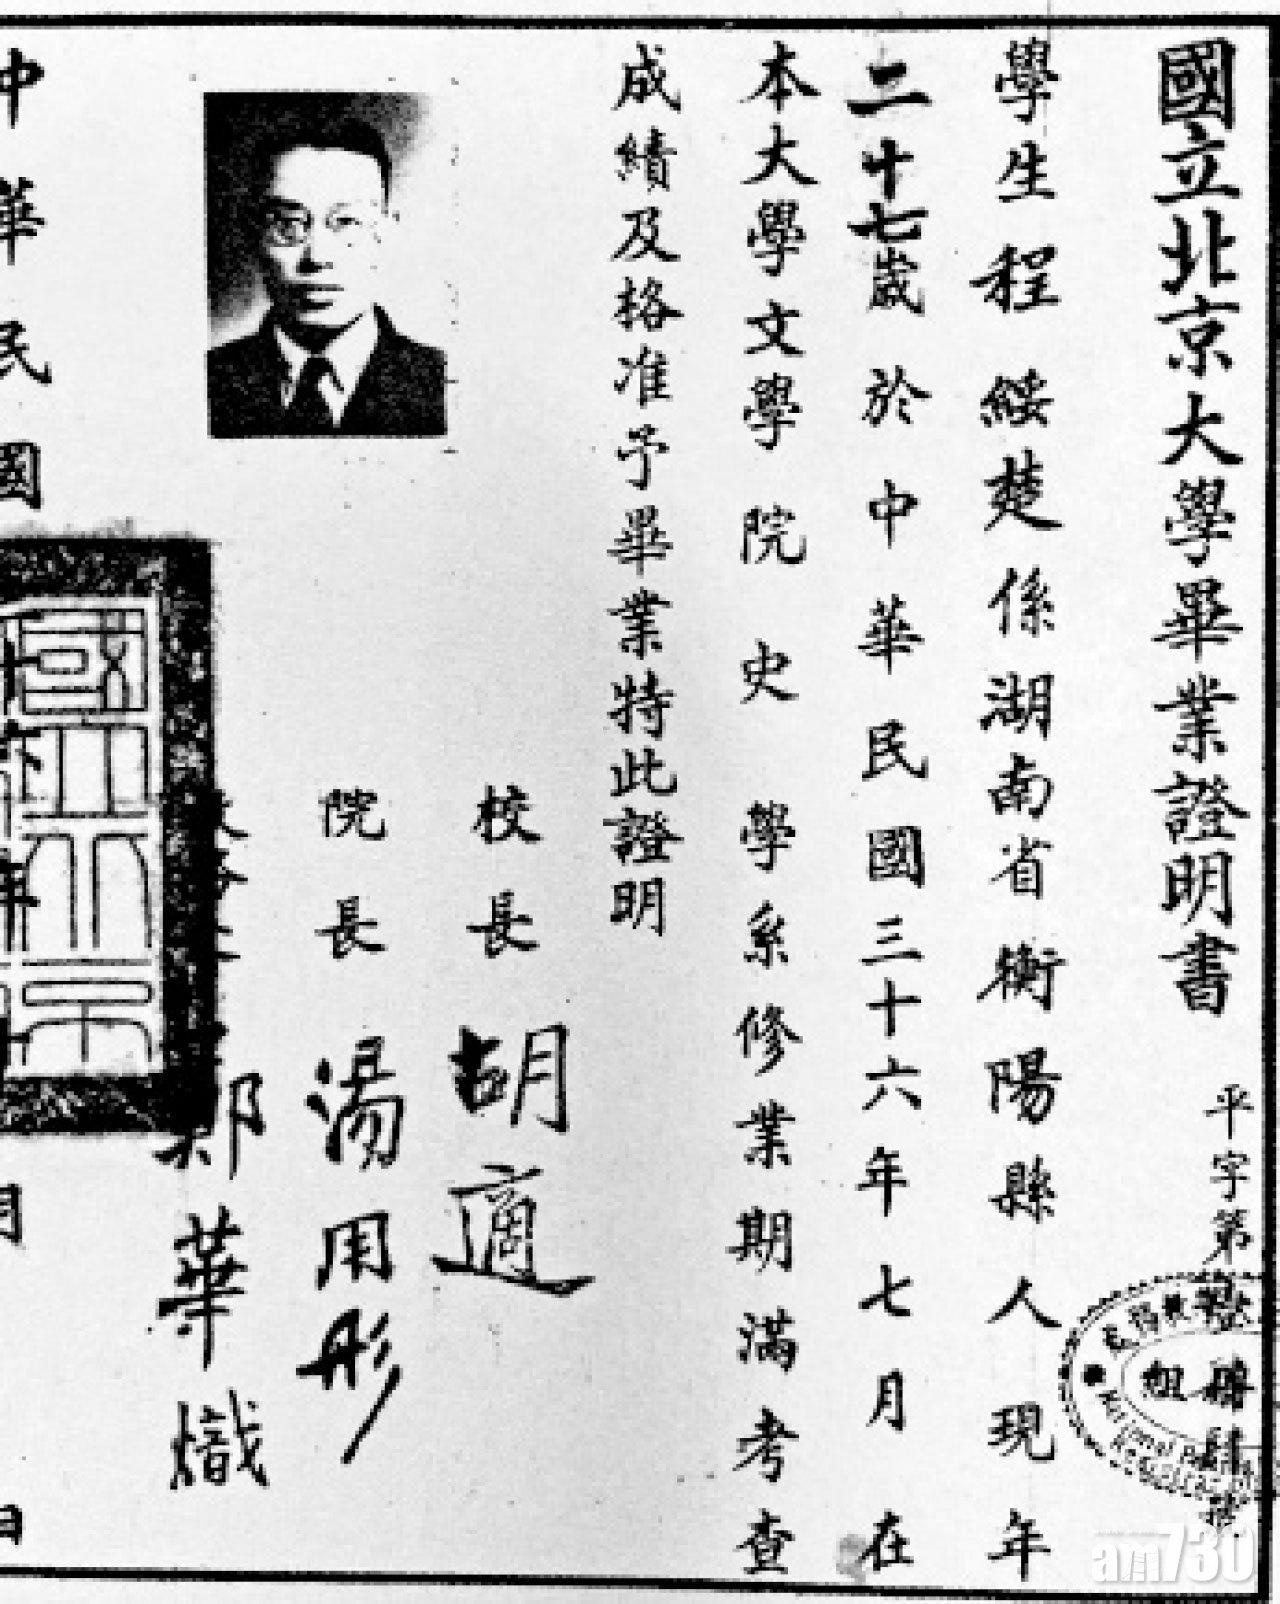 國立北京大學畢業證明書
平字第
學生程綏楚係湖南省衡陽縣人現年
二十七歲於中華民國三十六年七月在
本大學文學院史學系修業期滿考查
成績及格准予畢業特此證明
校長胡適
院長湯用彤
鄭華熾
中華民國
月
日
組
am730